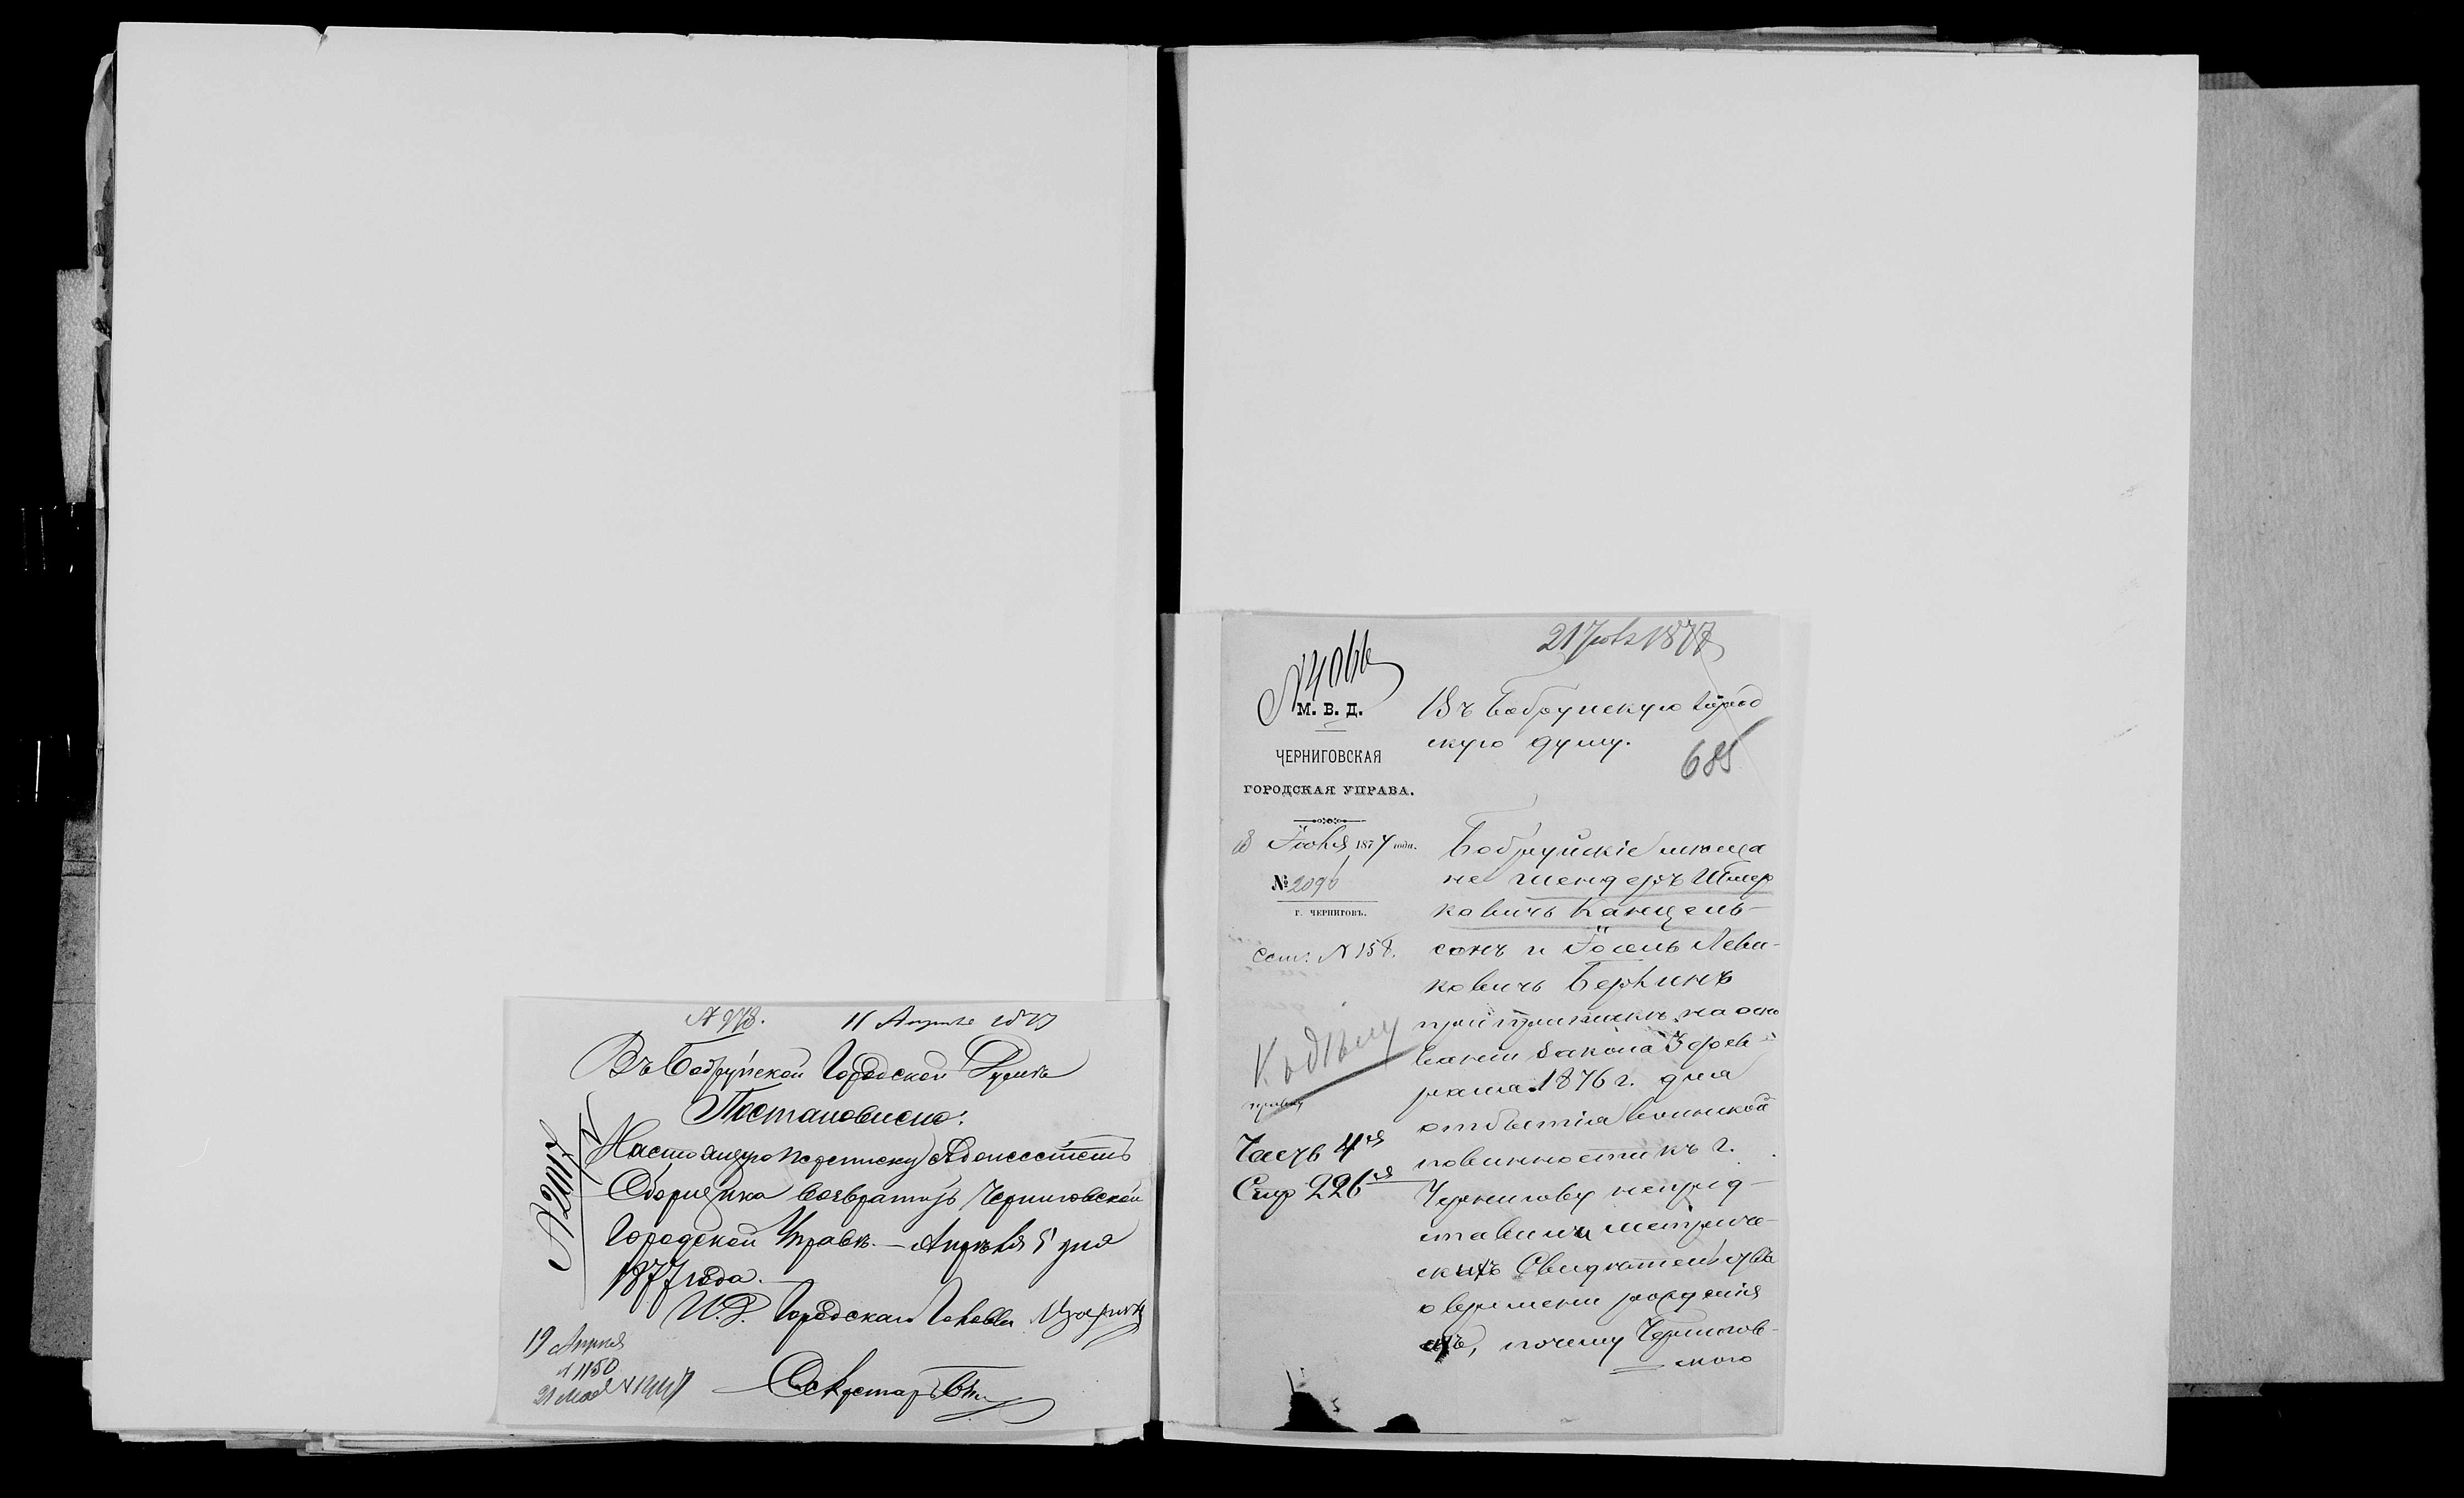 № 978. 11 Апреля 1877
Въ Бобруйской Городской Думѣ
Постановлено:
Настоящую подписку
Сборщика возвратить Черниговской
Городской Управѣ. — Апрѣля 5 дня
1877 года.
И. Д. Городскаго Головы
19 Апреля
№ 1150
21 Мая
Секретарь
21 Юля 1877
М. В. Д.
ЧЕРНИГОВСКАЯ
ГОРОДСКАЯ УПРАВА.
Іюня 1877 года.
№ 2090
г. ЧЕРНИГОВЪ.
№ 158.
Къ дѣлу
Часть 4ая
Стр 226ая
Въ Бобруйскую Город
скую думу.
685
Бобруйскіе мѣща
не Шендеръ Шмер
ковичъ Канцель-
сонъ и Іосель Леви-
ковичъ Берлинъ
приписанные на осно
ваніи закона 3 фев-
раля 1876 г. для
отбытія воинской
повинности къ г.
Чернигову непред-
ставили метриче-
скихъ Свидѣтельствъ
о времени рожденія
ихъ, почему Чернигов-
ская